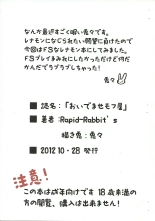 なんか最近すごく眠い兎々です。
レナモンになじられたい願望に負けたので
今回はFSなレナモン本にしてみました。
FSプレイまみれにしたかっただけど何だ
かんだでラブラブしちゃった!
兎々
■誌名:「おいでませモフ屋」
■著者:Rapid-Rabbit's
描き兎:兎々
■2012・10・28 発行
注意!
この本は成年向けです 18歳未満の
方の閲覧、購入は出来ません!